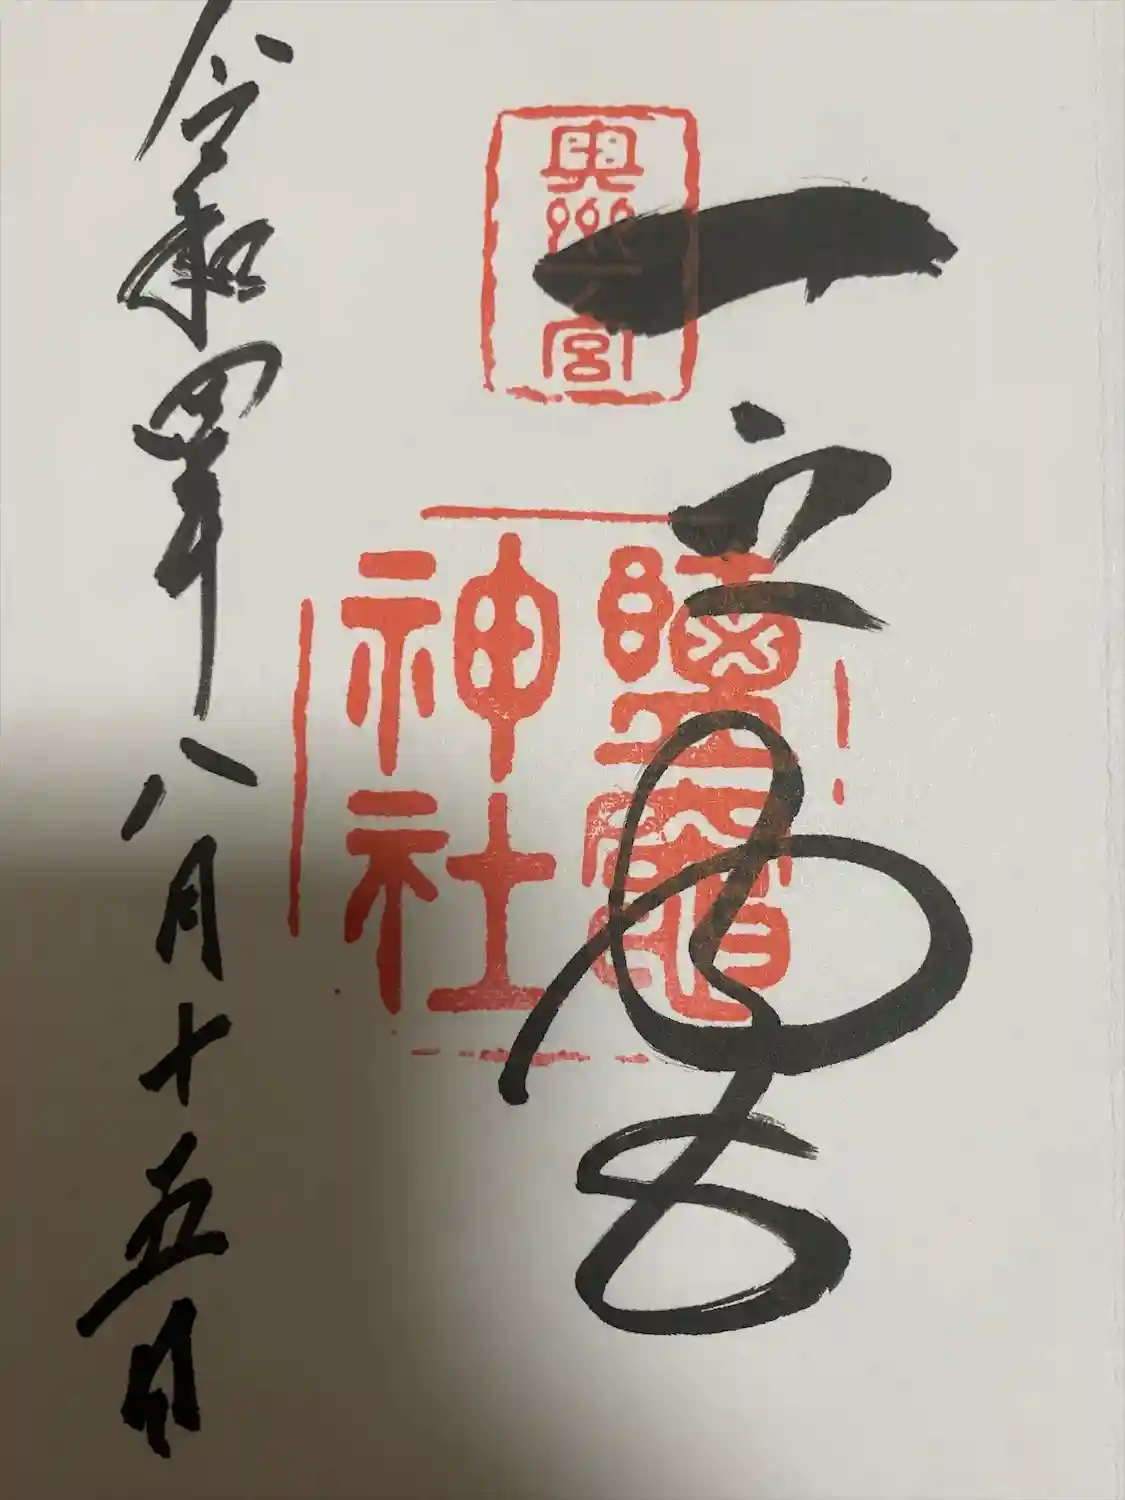 奥州一宮
一之宮
鹽竈
神社
令和四年八月十五日